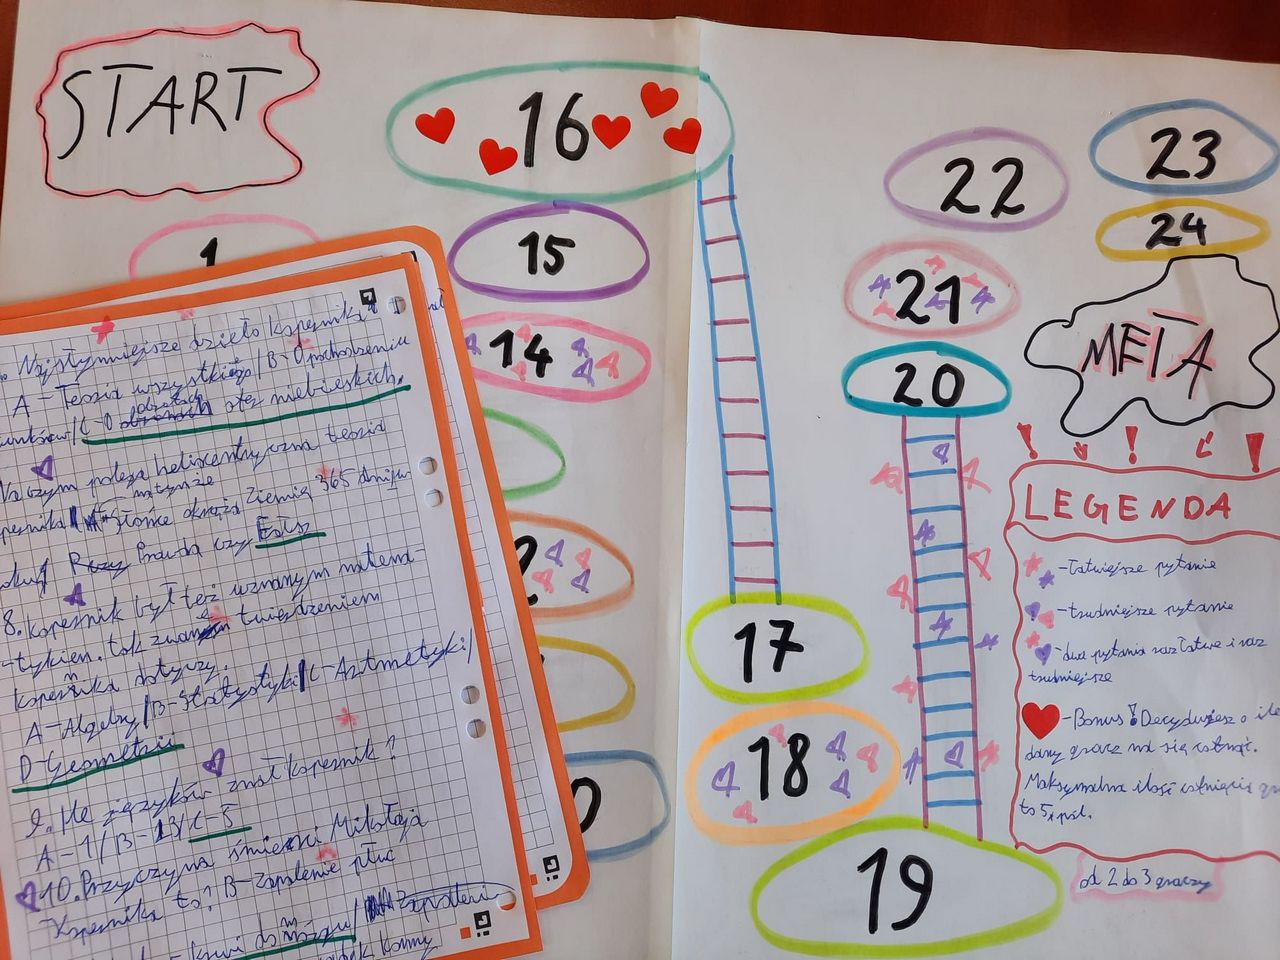 START
1
16
15
14
2
0
17
18
19
20
21
22
23
24
META
LEGENDA
-łatwiejsze pytanie
-trudniejsze pytanie
-dwa pytania raz łatwe i raz
trudniejsze
-Bonus! Decydujesz o ile
dany gracz ma się cofnąć.
Maksymalna ilość cofnięcia
to 5 pól.
od 2 do 3 graczy
Najsłynniejsze dzieło Kopernika
A - Teoria wszystkiego / B - O pochodzeniu
/ C - O obrotach sfer niebieskich.
Na czym polega heliocentryczna teoria
Słońce okrąża Ziemię 365 dni w
Prawda czy Fałsz
8. Kopernik był też uznanym matema-
-tykiem. tak zwanym twierdzeniem
Kopernika dotyczy.
A - Algebry / B - Statystyki / C - Arytmetyki /
D - Geometrii
9. Ile języków znał Kopernik?
A - 1 / B - 13 / C - 5
10. Przyczyna śmierci Mikołaja
Kopernika to? B - Zapalenie płuc
krwi do mózgu /